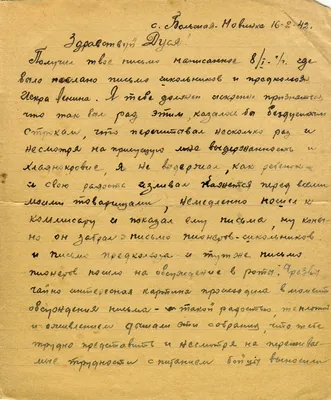 с. Большая-Новинка 16-2-42.
Здравствуй Дуся!
Получил твое письмо написанное 8/I. где
было письмо школьников и
Искра Ленина. Я тебе должен искренно признаться
что так был рад этим казалось бы бездушным
строкам, что перечитывал несколько раз и
несмотря на присущую мне выдержанность и
хладнокровие, я не выдержал, как ребенок
и свою радость изливал перед всеми
моими товарищами, немедленно пошел к
комиссару и показал ему письма, ну конеч
но он забрал письмо пионеров-школьников
и письмо и тут же письмо
пионеров пошло на обсуждение в роты. Чрезвы
чайно интересная картина происходила в момент
обсуждения письма - такой радостью, теплотой
и оживлением дышали эти собрания, что тебе
трудно представить и несмотря на переживае
мые трудности с питанием бойцы выносили